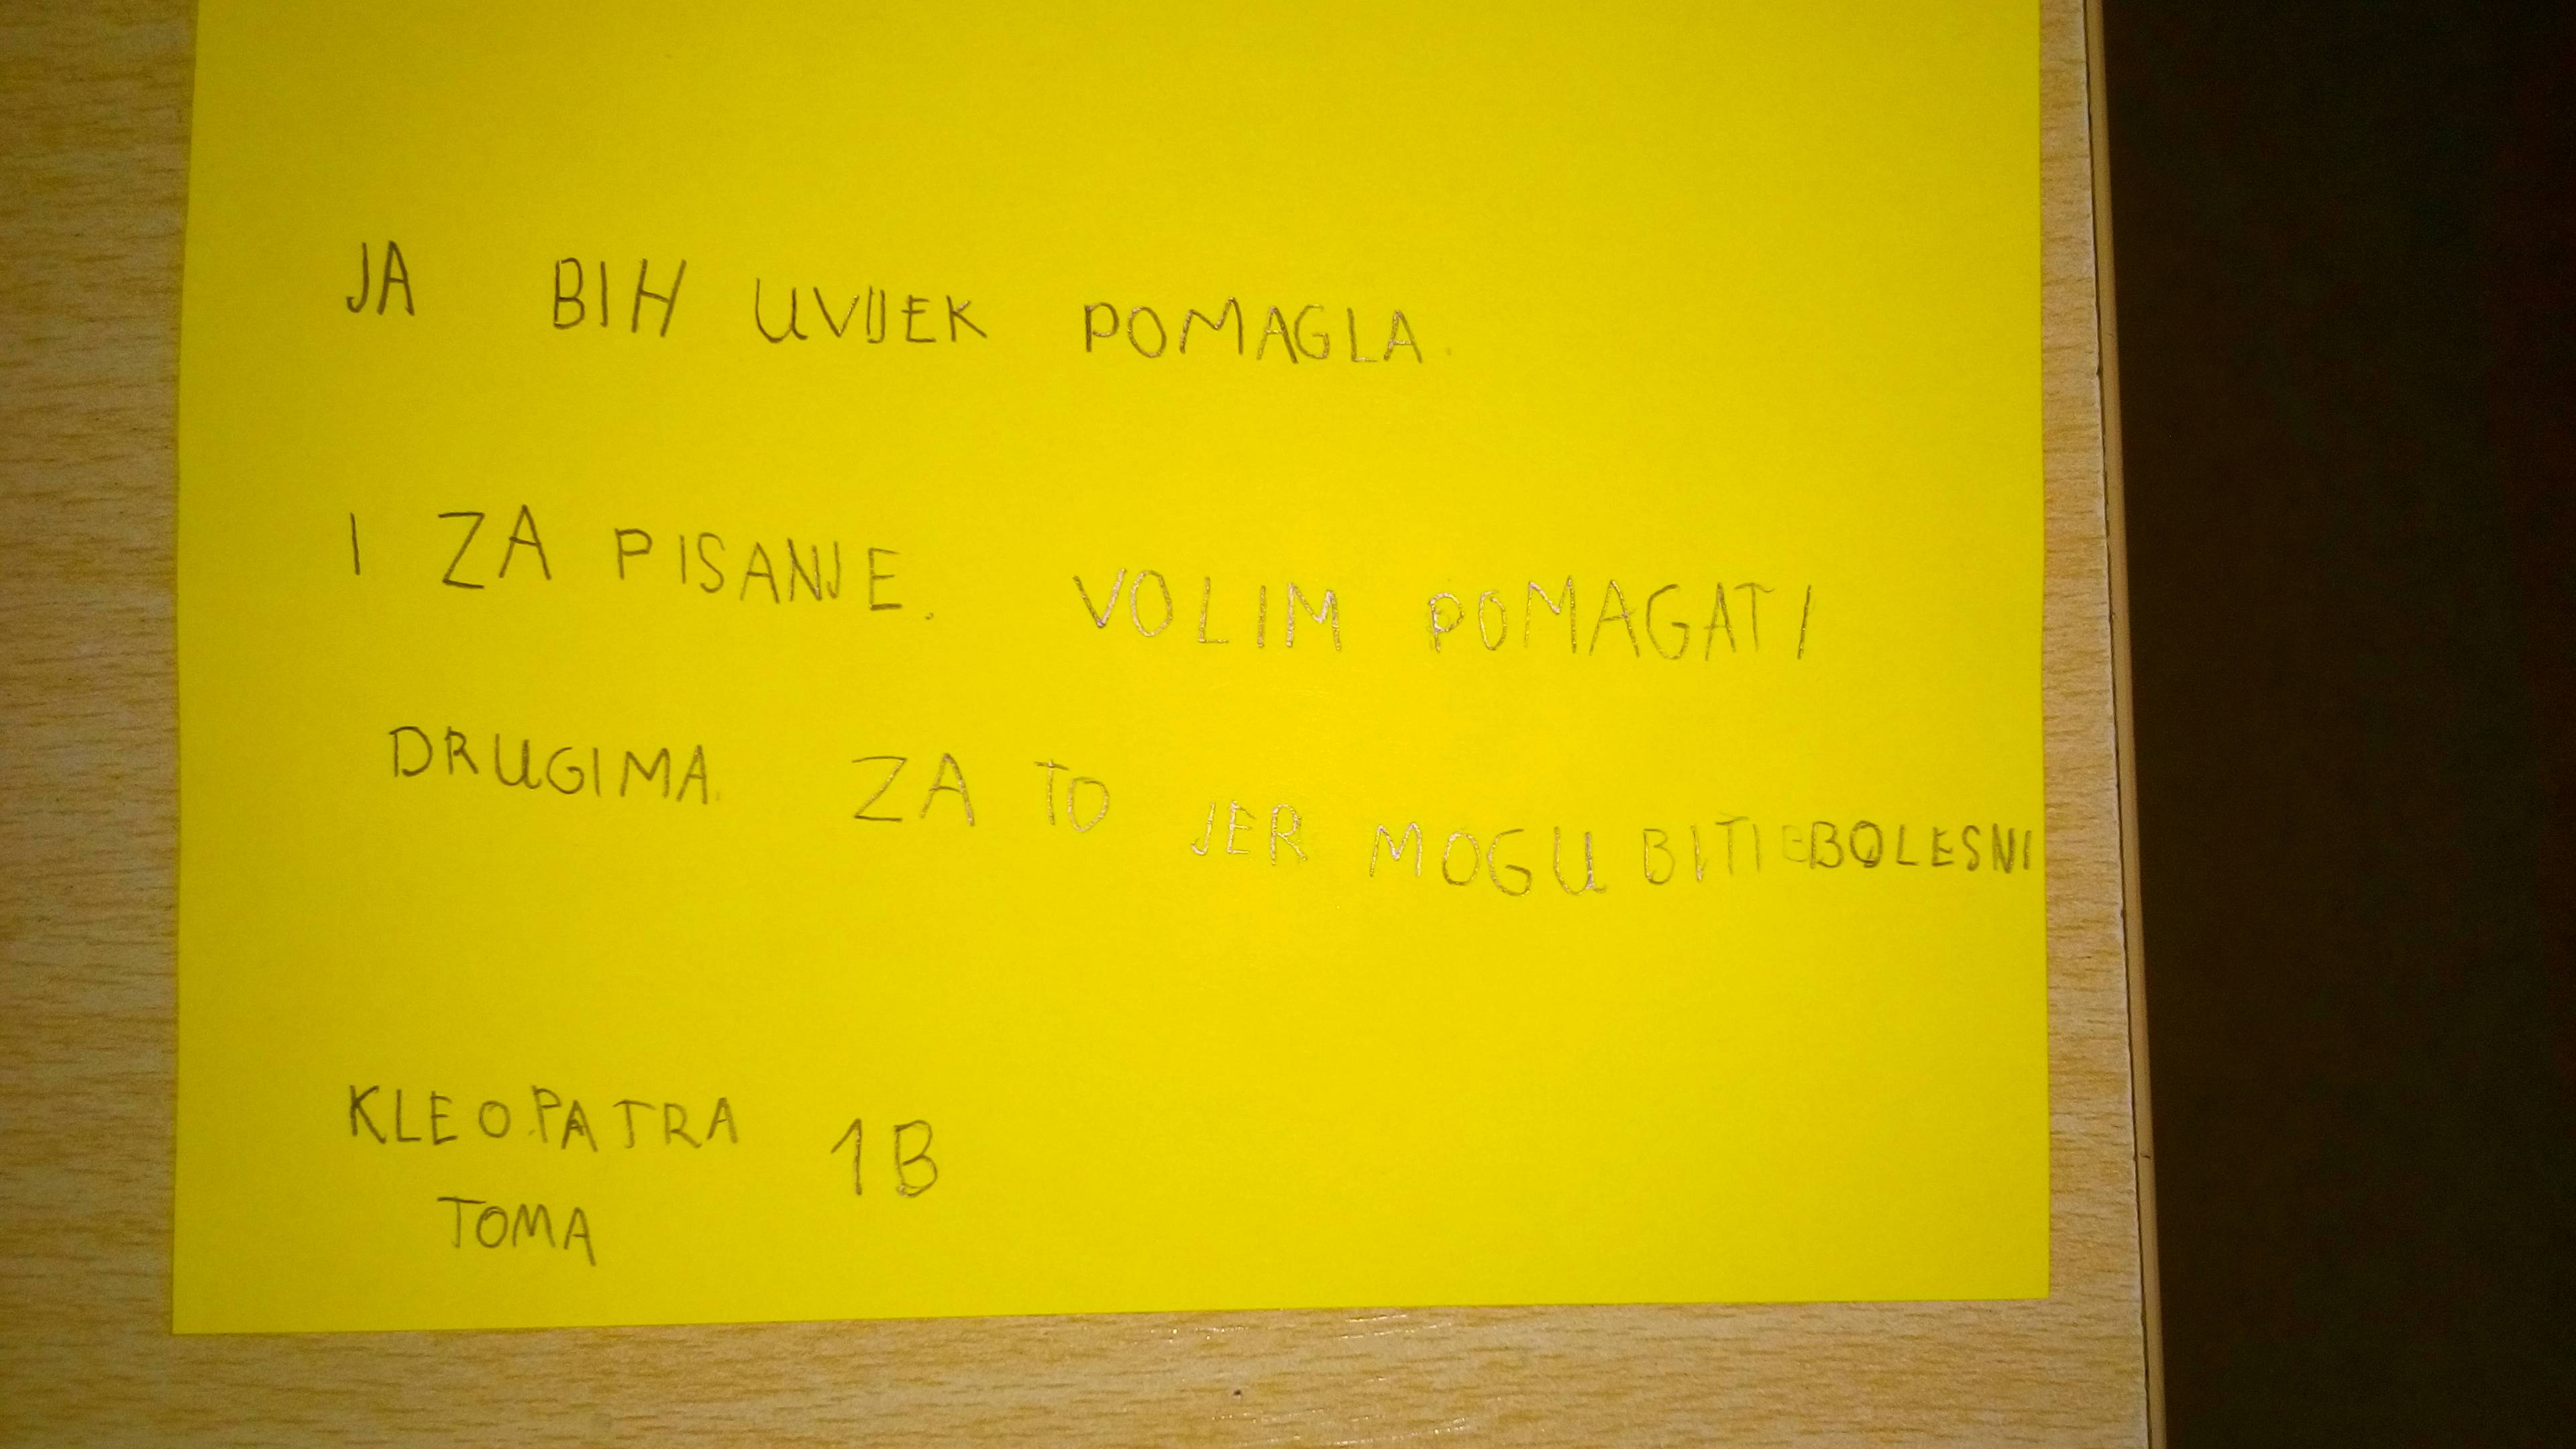 JA BIH UVIJEK POMAGLA.
I ZA PISANJE. VOLIM POMAGATI
DRUGIMA. ZA TO JER MOGU BITI BOLESNI
KLEOPATRA 1B
TOMA